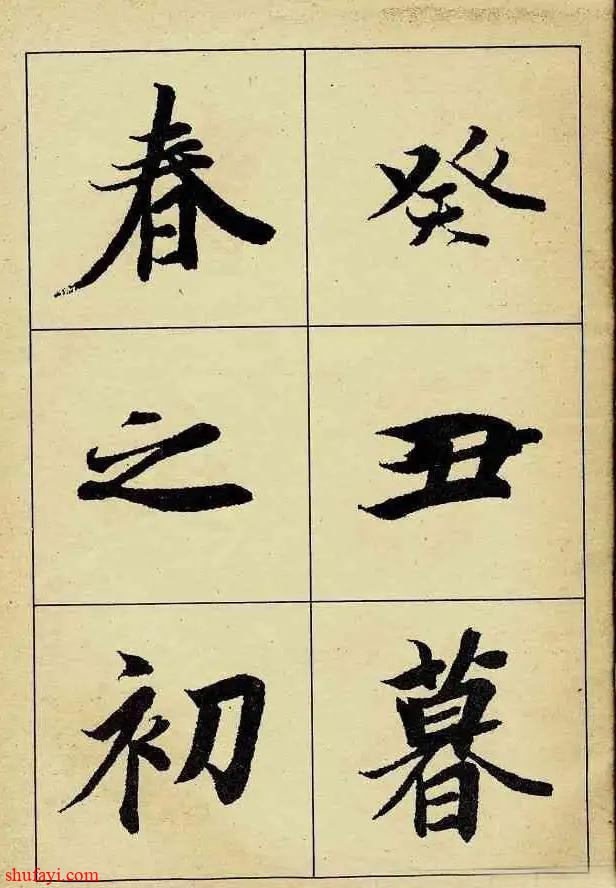 癸丑暮
春之初
shufayi.com